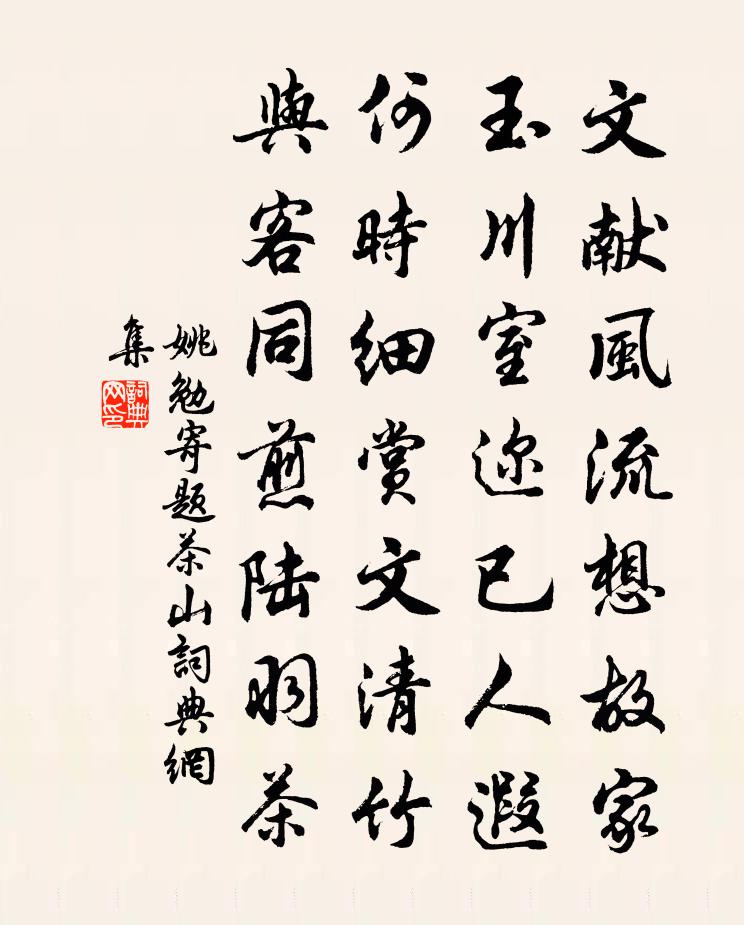 文献風流想故家
玉川室迩已人遐
何時细賞文清竹
與客同煎陆羽茶
姚勉寄题茶山詞典網
集
詞典
网印